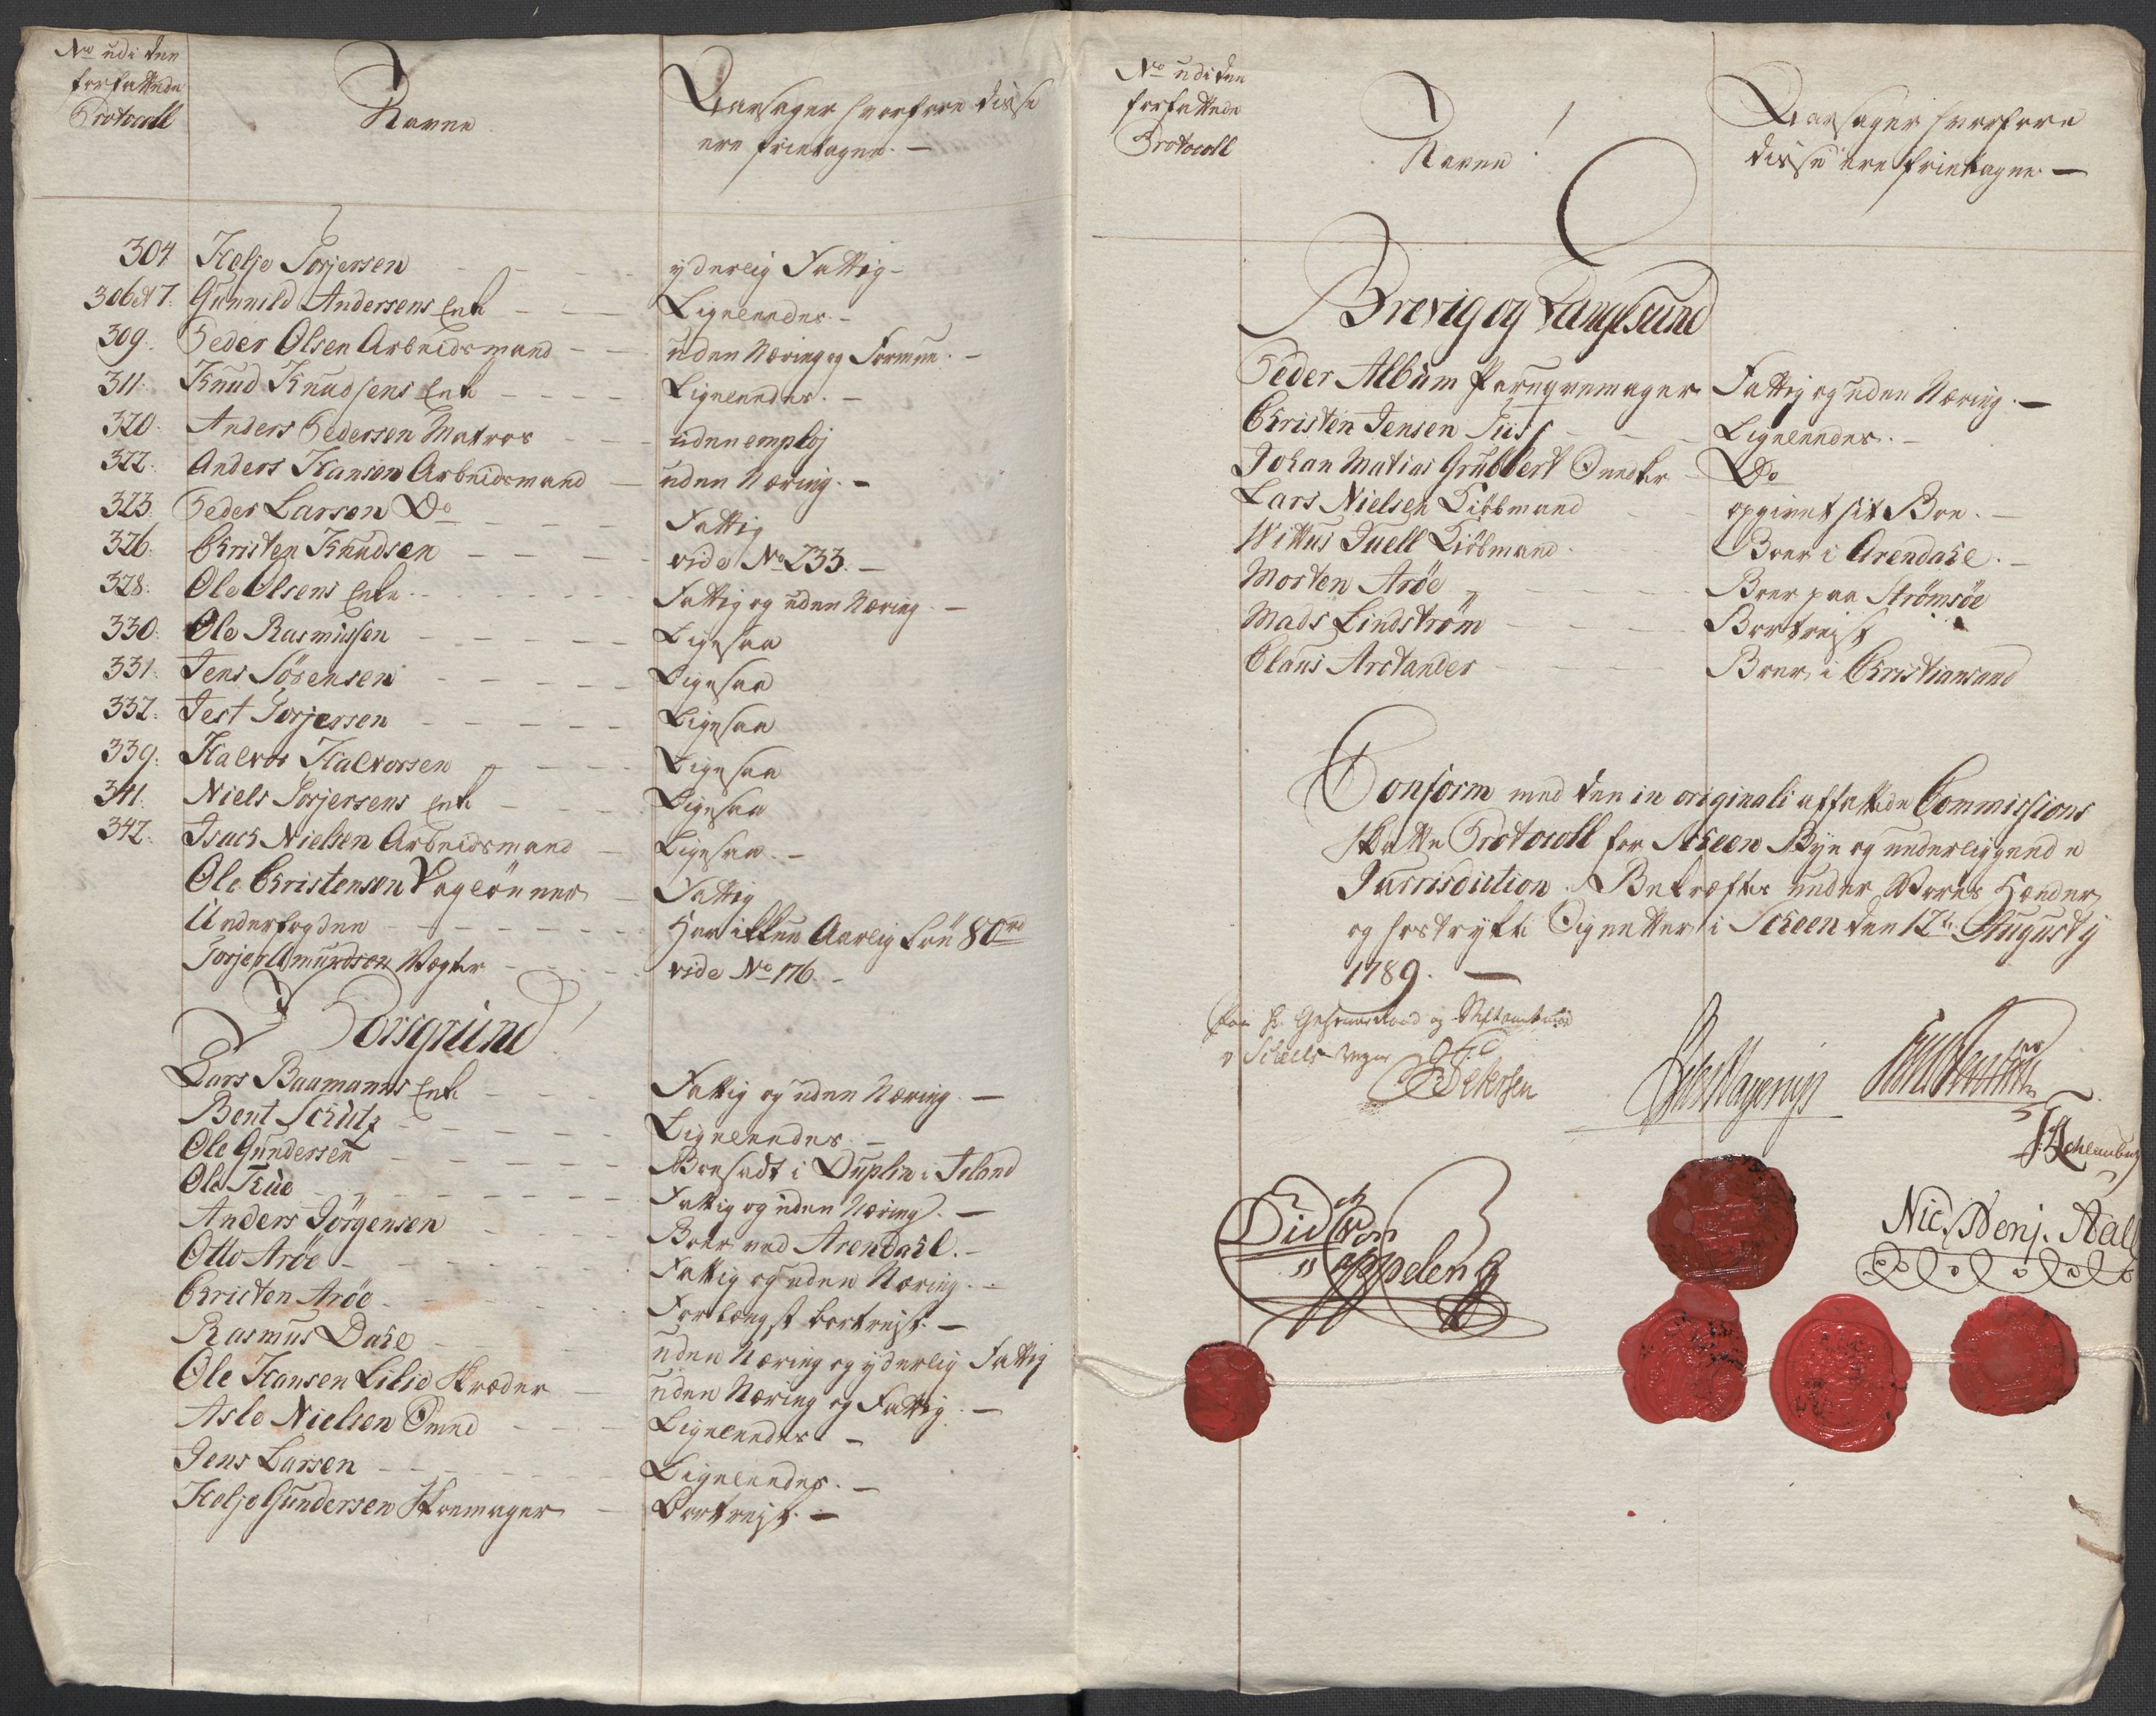 No udi den
forfattede
Protocoll
Navne
Aarsager hvorfore disse
ere frietagne. —
304 Helje Torjersen - - - yderlig Fattig -
306 et 7. Gunnild Andersens Enke - - - Ligeleedes. -
309. Peder Olsen Arbeidsmand - - uden Næring og Formue. -
311. Knud Knudsens Enke - - - - Ligeleedes. -
320. Anders Pedersen Matros - - - uden emploj
322. Anders Hansen Arbeidsmand — uden Næring. -
323. Peder Larsen Do - - - - Fattig
326. Christen Knudsen - - - - vide No 233. -
328. Ole Olsens Enke - - - - Fattig og uden Næring. -
330. Ole Rasmussen - - - - - Ligesaa
331. Jens Sörensen - - - - - Ligesaa
332. Jest Torjersen - - - - - Ligesaa
339. Halvor Halvorsen - - - - Ligesaa
341. Niels Torjersens Enke - - - Ligesaa
342. Isach Nielsen Arbeidsmand — Ligesaa. -
Ole Christensen Dagleönner — Fattig
Underfogden - - - - - - Har ikkun Aarlig Lön 80 rd
Torje Amundsen Vægter - - - vide No 176. -
Porsgrund
Lars Baamanns Enke - - - Fattig og uden Næring. —
Bent Schütz - - - - - Ligeleedes. -
Ole Gundersen - - - - - Boesadt i Duplin i Irland
Ole - - - - - - - Fattig og uden Næring. —
Anders Jörgensen - - - - Boer ved Arendahl. -
Otto Aröe - - - - - - Fattig og uden Næring. -
Christen Aröe - - - - - Forlængst bortrejst. —
Rasmus Dahl - - - uden Næring og yderlig Fattig
Ole Hansen Lilie Skræder — uden Næring og Fattig. —
Asle Nielsen Smed - - - Ligeleedes. -
Jens Larsen - - - - - - Ligeleedes. —
Helje Gundersen Skoemager — Bortrejst. —
No udi den
forfattede
Protocoll
Navne
Aarsager hvorfore
disse ere frietagne —
Brevig og Langesund
Peder Album Peruqvemager Fattig og uden Næring. —
Christen Jensen - - - Ligeleedes. -
Johan Matias Grubbert Snedker - Do
Lars Nielsen Kiöbmand - - opgivet sit Boe. —
Wittus Juell Kiöbmand - - Boer i Arendahl. -
Morten Aröe - - - - Boer paa Strömsöe
Mads Lindström - - - - Bortrejst
Claus Arctander - - - - Boer i Christiansand
Conform med den in originali affattede Commissions
Skatte Protocoll for Scheen Bye og underliggende
Jurisdiction. Bekræftes under Vores Hænder
og hostrykte Signetter i Scheen den 12te Augusty
1789. —
paa Hr. Geheimeraad og Stiftamtmand
v Schiells vegne
Petersen
Did von Cappelen
Nic. Benj. Aall